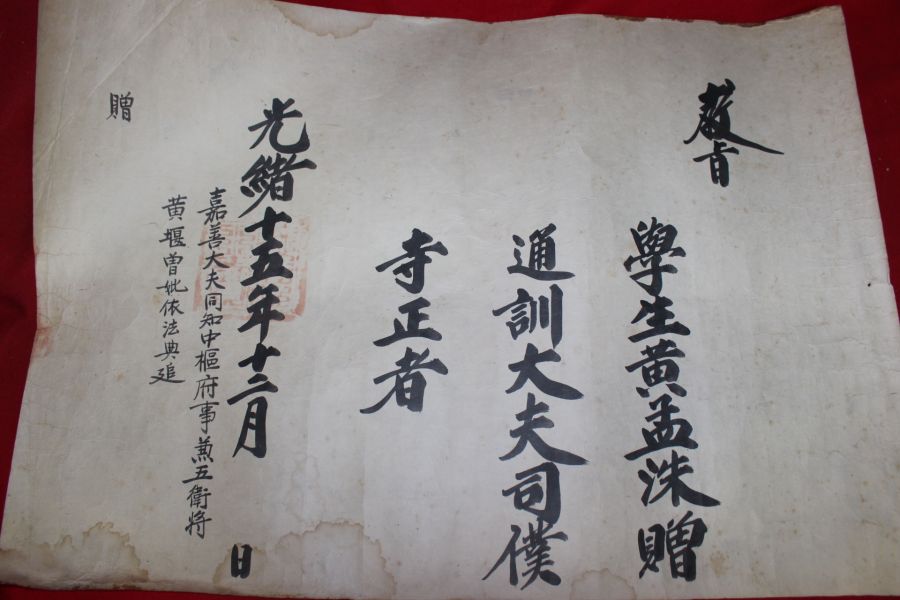 敎旨
學生黃孟洙贈
通訓大夫司僕
寺正者
光緖十五年十二月 日
嘉善大夫同知中樞府事兼五衛將
黃堰曾妣依法典追
贈